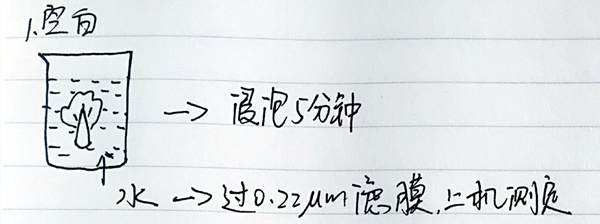 1.空白
→ 浸泡5分钟
水 → 过0.22μm滤膜,上机测定